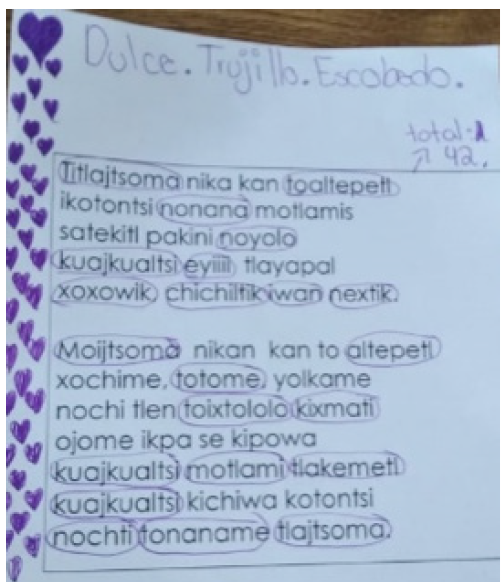 Dulce. Trujillo. Escobedo.
total:
42.
Titlajtsoma nika kan toaltepetl
ikotontsi nonana motlamis
satekitl pakini noyolo
kuajkualtsi eyiiii tlayapal
xoxowik chichiltik iwan nextik.
Moijtsoma nikan kan to altepetl
xochime, totome, yolkame
nochi tlen toixtololo kixmati
ojome ikpa se kipowa
kuajkualtsi motlami tlakemetl
kuajkualtsi kichiwa kotontsi
nochti tonaname tlajtsoma.